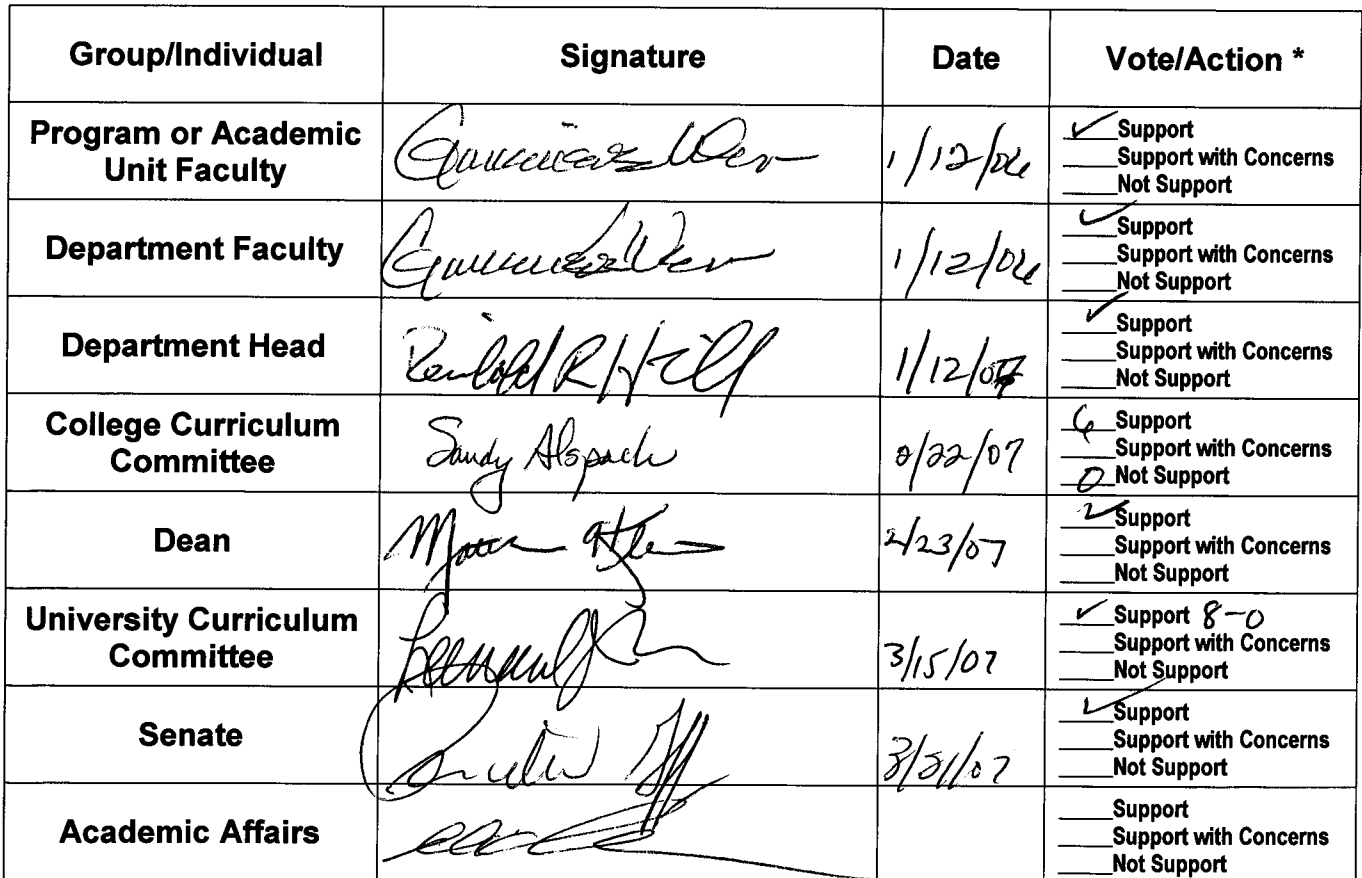 Group/Individual Signature Date Vote/Action *
Program or Academic Unit Faculty 1/12/06 ✓ Support
Support with Concerns
Not Support
Department Faculty 1/12/06 ✓ Support
Support with Concerns
Not Support
Department Head Reinhold R Hill 1/12/07 ✓ Support
Support with Concerns
Not Support
College Curriculum Committee Sandy Alspach 2/22/07 6 Support
Support with Concerns
0 Not Support
Dean 2/23/07 ✓ Support
Support with Concerns
Not Support
University Curriculum Committee 3/15/07 ✓ Support 8-0
Support with Concerns
Not Support
Senate ✓ Support
Support with Concerns
Not Support
Academic Affairs Support
Support with Concerns
Not Support